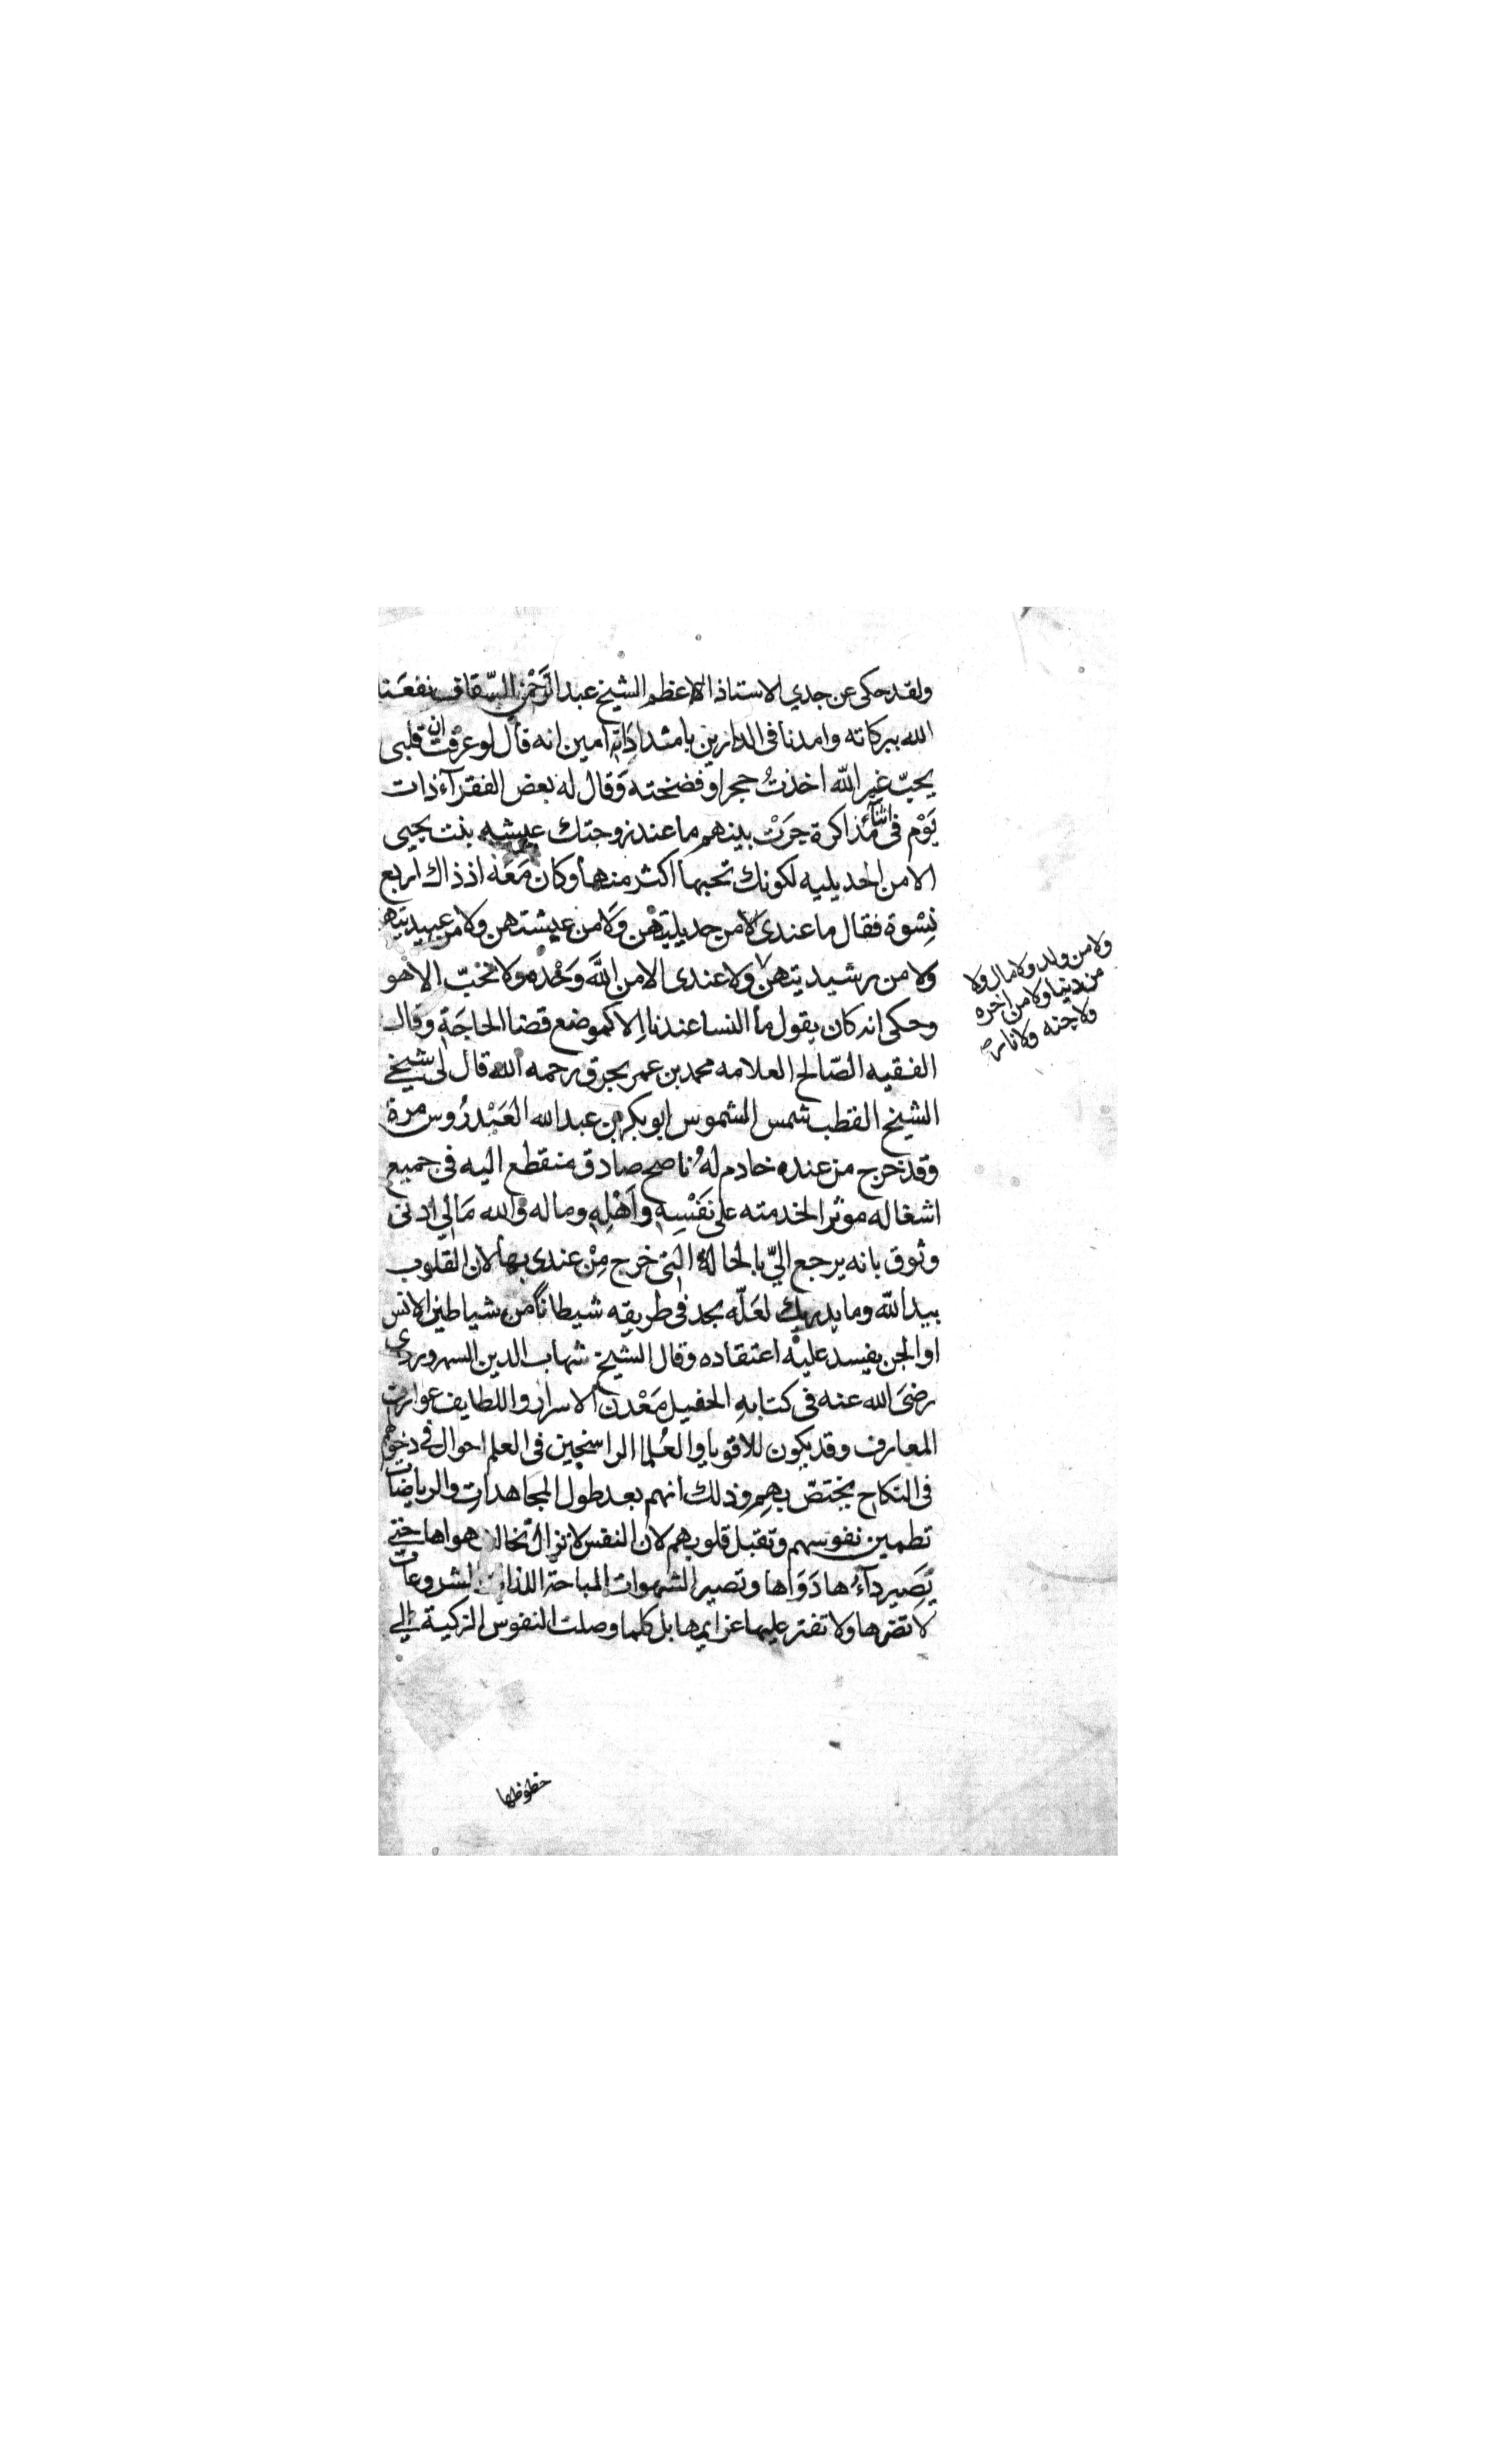 ولقد حكى عن جدي الاستاذ الاعظم الشيخ عبد الرَّحمن السّقاف نفعَنا
الله ببركاته وامدنا فى الدارين بامداداته امين انه قال لو عرَفتُ ان قلبى
يحبّ غير الله اخذتُ حجرا وفضخته وَقال له بعض الفقرآء ذات
يَوْم فى اثناء مذاكرة جَرَتْ بينهم ما عند زوجتك عيشه بنت يحيى
الا من الحديليه لكونك تحبها اكثر منهما وكان مَعَه اذ ذاك اربع
نِسْوة فقال ما عندى لا من حديليتهْن وَلا من عيشتهن ولا من عبيديتها
ولا من رشيديتهن ولا عندى الا من اللَّه وَحْده ولا نحبّ الا هو
ولا من ولد ولا مال ولا
من دنيا ولا من اخره
ولا جنه ولا نار صح
وحكى انه كان يقول ما النسا عندنا اِلا كموضع قضا الحاجَةِ وقال
الفقيه الصّالح العلامه محمد بن عمر بحرق رحمه الله قال لى شيخي
الشيخ القطب شمس الشموس ابو بكر بن عبد الله العَيْدرُوس مرة
وقد خرج من عنده خادم لهُ ناصح صادق منقطع اليه فى جميع
اشغاله موثر الخدمته على نَفْسِهِ وأهْلِهِ وماله والله مَالي ادنى
وثوق بانه يرجع اليّ بالحالة التى خرج مِنْ عندى بها لان القلوب
بيد اللّه وما يدريك لعَلّه يجد فى طريقه شيطاناً من شياطين الانس
او الجن يفسد عليْه اعتقاده وقال الشيخ شهاب الدين السهروردى
رضىَ الله عنه فى كتابهِ الحفيل مَعْدن الاسرار واللطايف عوارف
المعارف وقد يكون للاقويا والعُلما الراسخين فى العلم احوال في دخولهم
فى النكاح يختصّ بهِم وذلك انهم بعد طول المجاهداتِ والرياضات
تطمين نفوسهم وتقبل قلوبهم لان النفس لا تزال تخالف هواها حتى
تَصِير دآءُها دَوَاها وتصير الشهوات المباحة اللذات المشروعات
لا تضرها ولا تفتر عليها عزايمها بل كلما وصلت النفوس الزكية الي
حظوظها